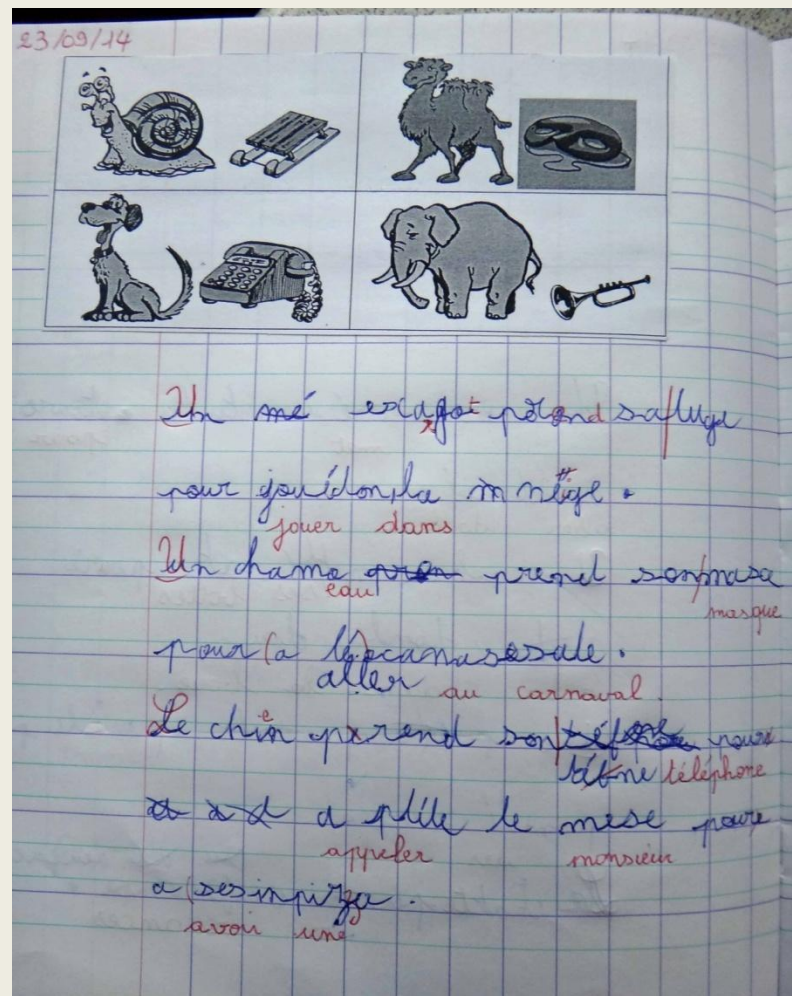 23/09/14
Un escargot prend sa luge
pour jouédon la neige.
jouer dans
Un chamo prend son masa
eau masque
pour a lé canasesale.
aller au carnaval.
Le chien prend son poure
téléphone
a plile le mese poure
appeler monsieur
a sesinpizza.
avoir une